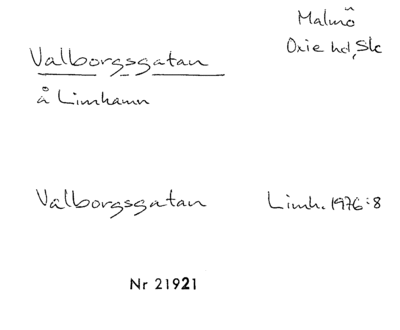 Malmö
Oxie hd, Sk
Valborgsgatan
å Limhamn
Valborgsgatan Limh. 1976:8
Nr 21921